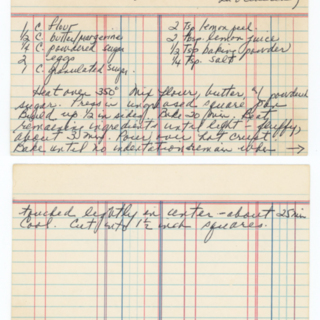 1 C. flour
1/2 C. butter/margarine
1/4 C. powdered sugar
2 eggs
1 C. granulated sugar
2 Tsp lemon peel
2 Tbsp. lemon juice
1/2 Tsp baking powder
1/4 Tsp. salt
Heat oven 350° Mix flour, butter, & powdered
sugar. Press in ungreased square pan
Build up 1/2 in sides. Bake 20 min. Beat
remaining ingredients until light + fluffy,
about 3 min. Pour over hot crust.
Bake until no indentation remain when →
touched lightly in center - about 25 min
Cool. Cut into 1 1/2 inch squares.